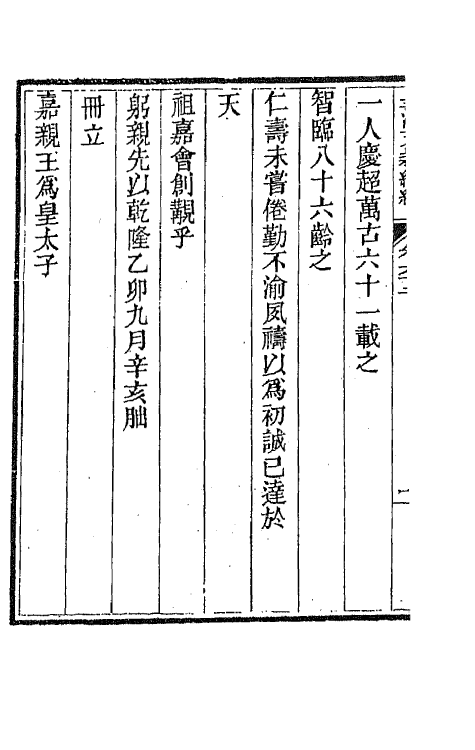 一人慶超萬古六十一載之
智臨八十六齡之
仁壽未嘗倦勤不渝夙禱以爲初誠已達於
天
祖嘉會創覯乎
躬親先以乾隆乙卯九月辛亥朏
冊立
嘉親王爲皇太子